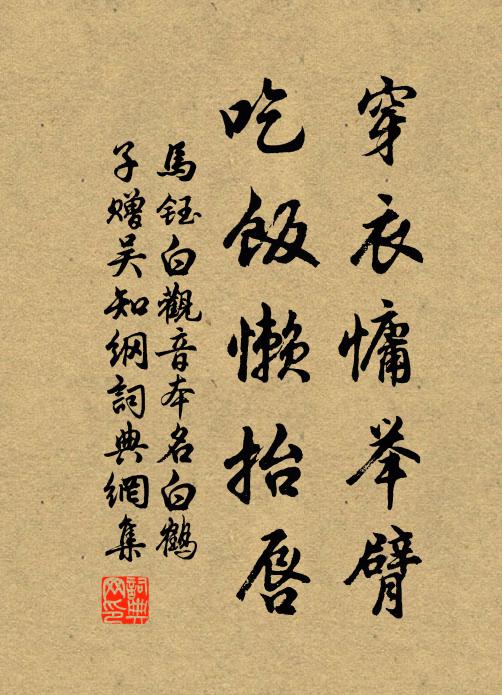 穿衣慵举臂
吃飯懶抬唇
馬鈺白觀音本名白鶴
子贈吴知綱詞典網集
詞典网印